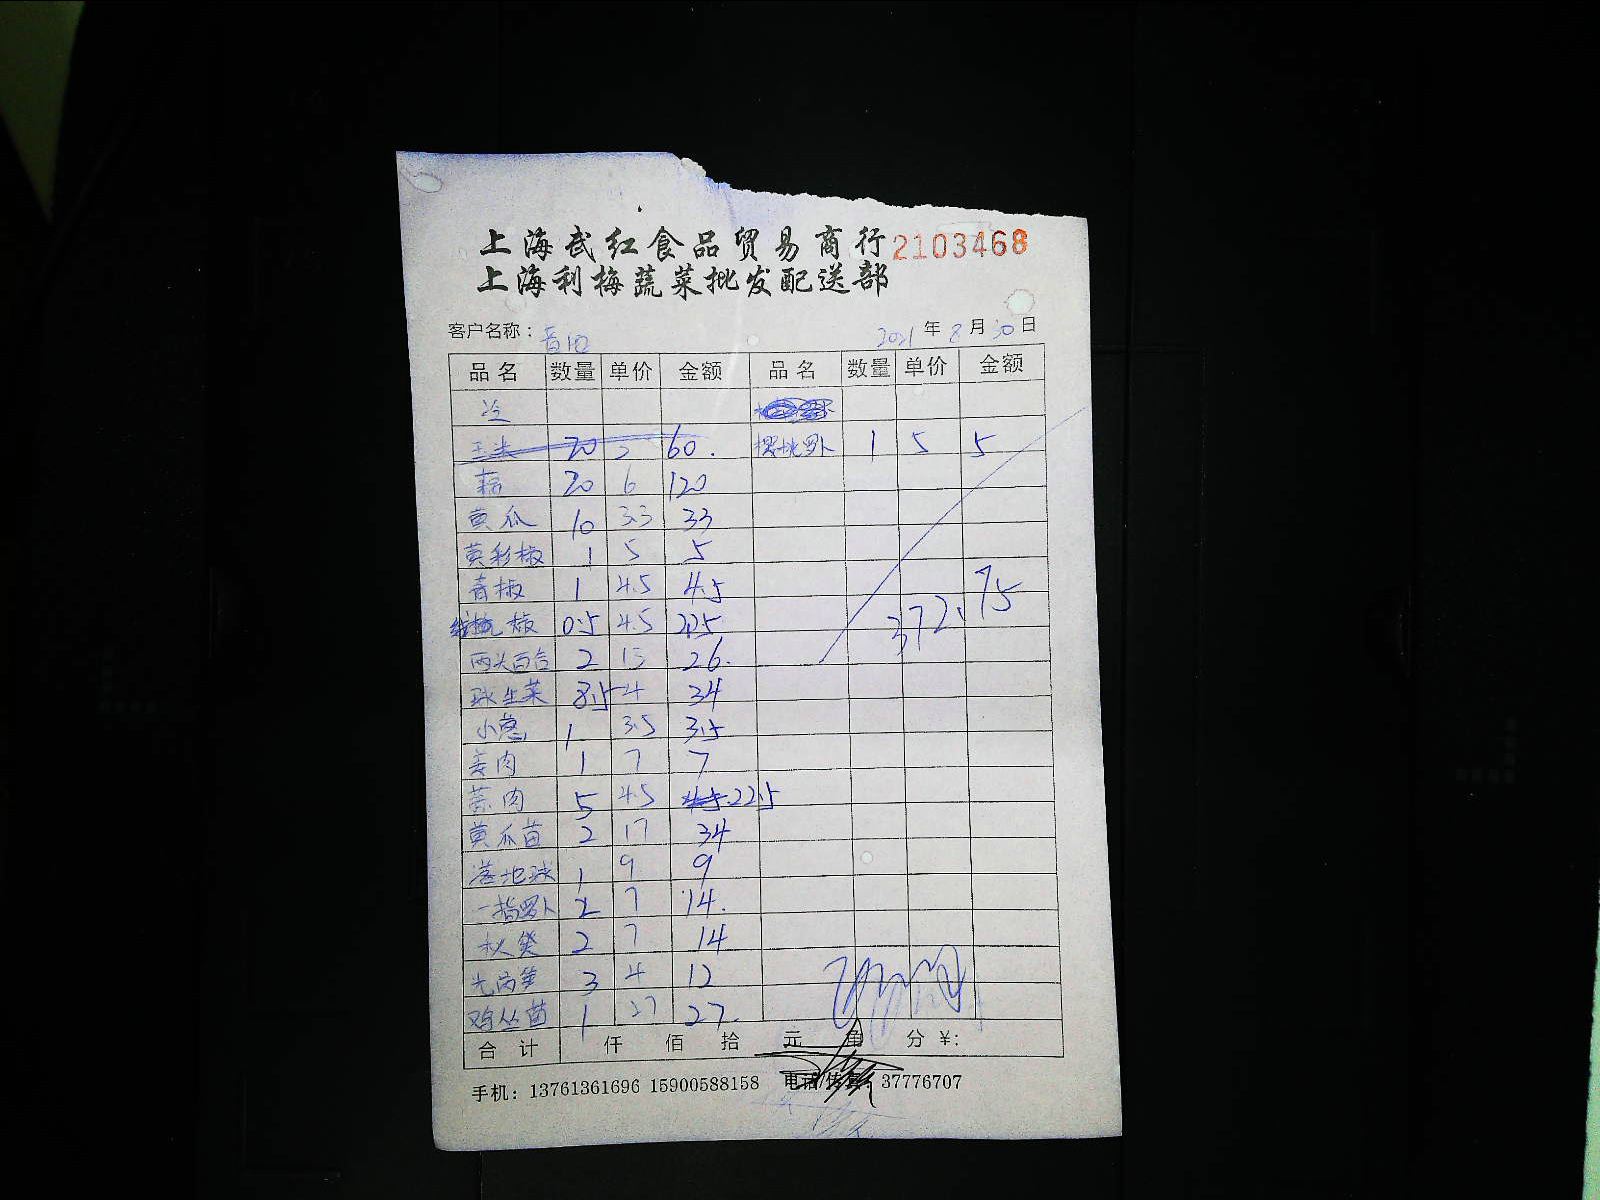 上海武红食品贸易商行 2103468
上海利梅蔬菜批发配送部
客户名称： 2021年8月30日
品名 数量 单价 金额 品名 数量 单价 金额
冷
玉米 20 3 60. 樱桃萝卜 1 5 5
藕 20 6 120
黄瓜 10 3.3 33
黄彩椒 1 5 5
青椒 1 4.5 4.5
椒 0.5 4.5 2.25
两头百合 2 13 26.
球生菜 8.5 4 34
小葱 1 3.5 3.5
姜肉 1 7 7
蒜肉 5 4.5 22.5
黄瓜苗 2 17 34
落地球 1 9 9
一指萝卜 2 7 14.
秋葵 2 7 14
光莴笋 3 4 12
鸡丛菌 1 27 27.
372.75
合计 仟 佰 拾 元 角 分 ¥:
手机：13761361696 15900588158 电话/传真：37776707